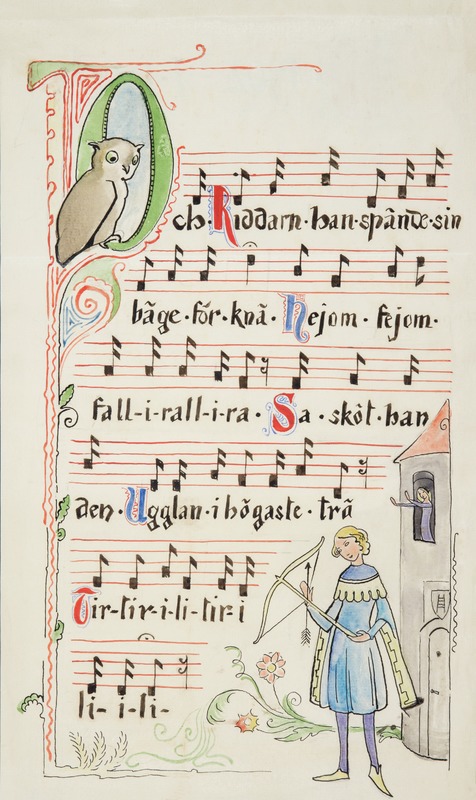 Och · Riddarn · han · spânde · sin
bãge · för · knã · Hejom · fejom ·
fall-i-rall-i-ra · Sa · skôt · han
den · Ugglan · i hôgaste · trã
Tir-tir-i-li-tir-i
li- i-li-